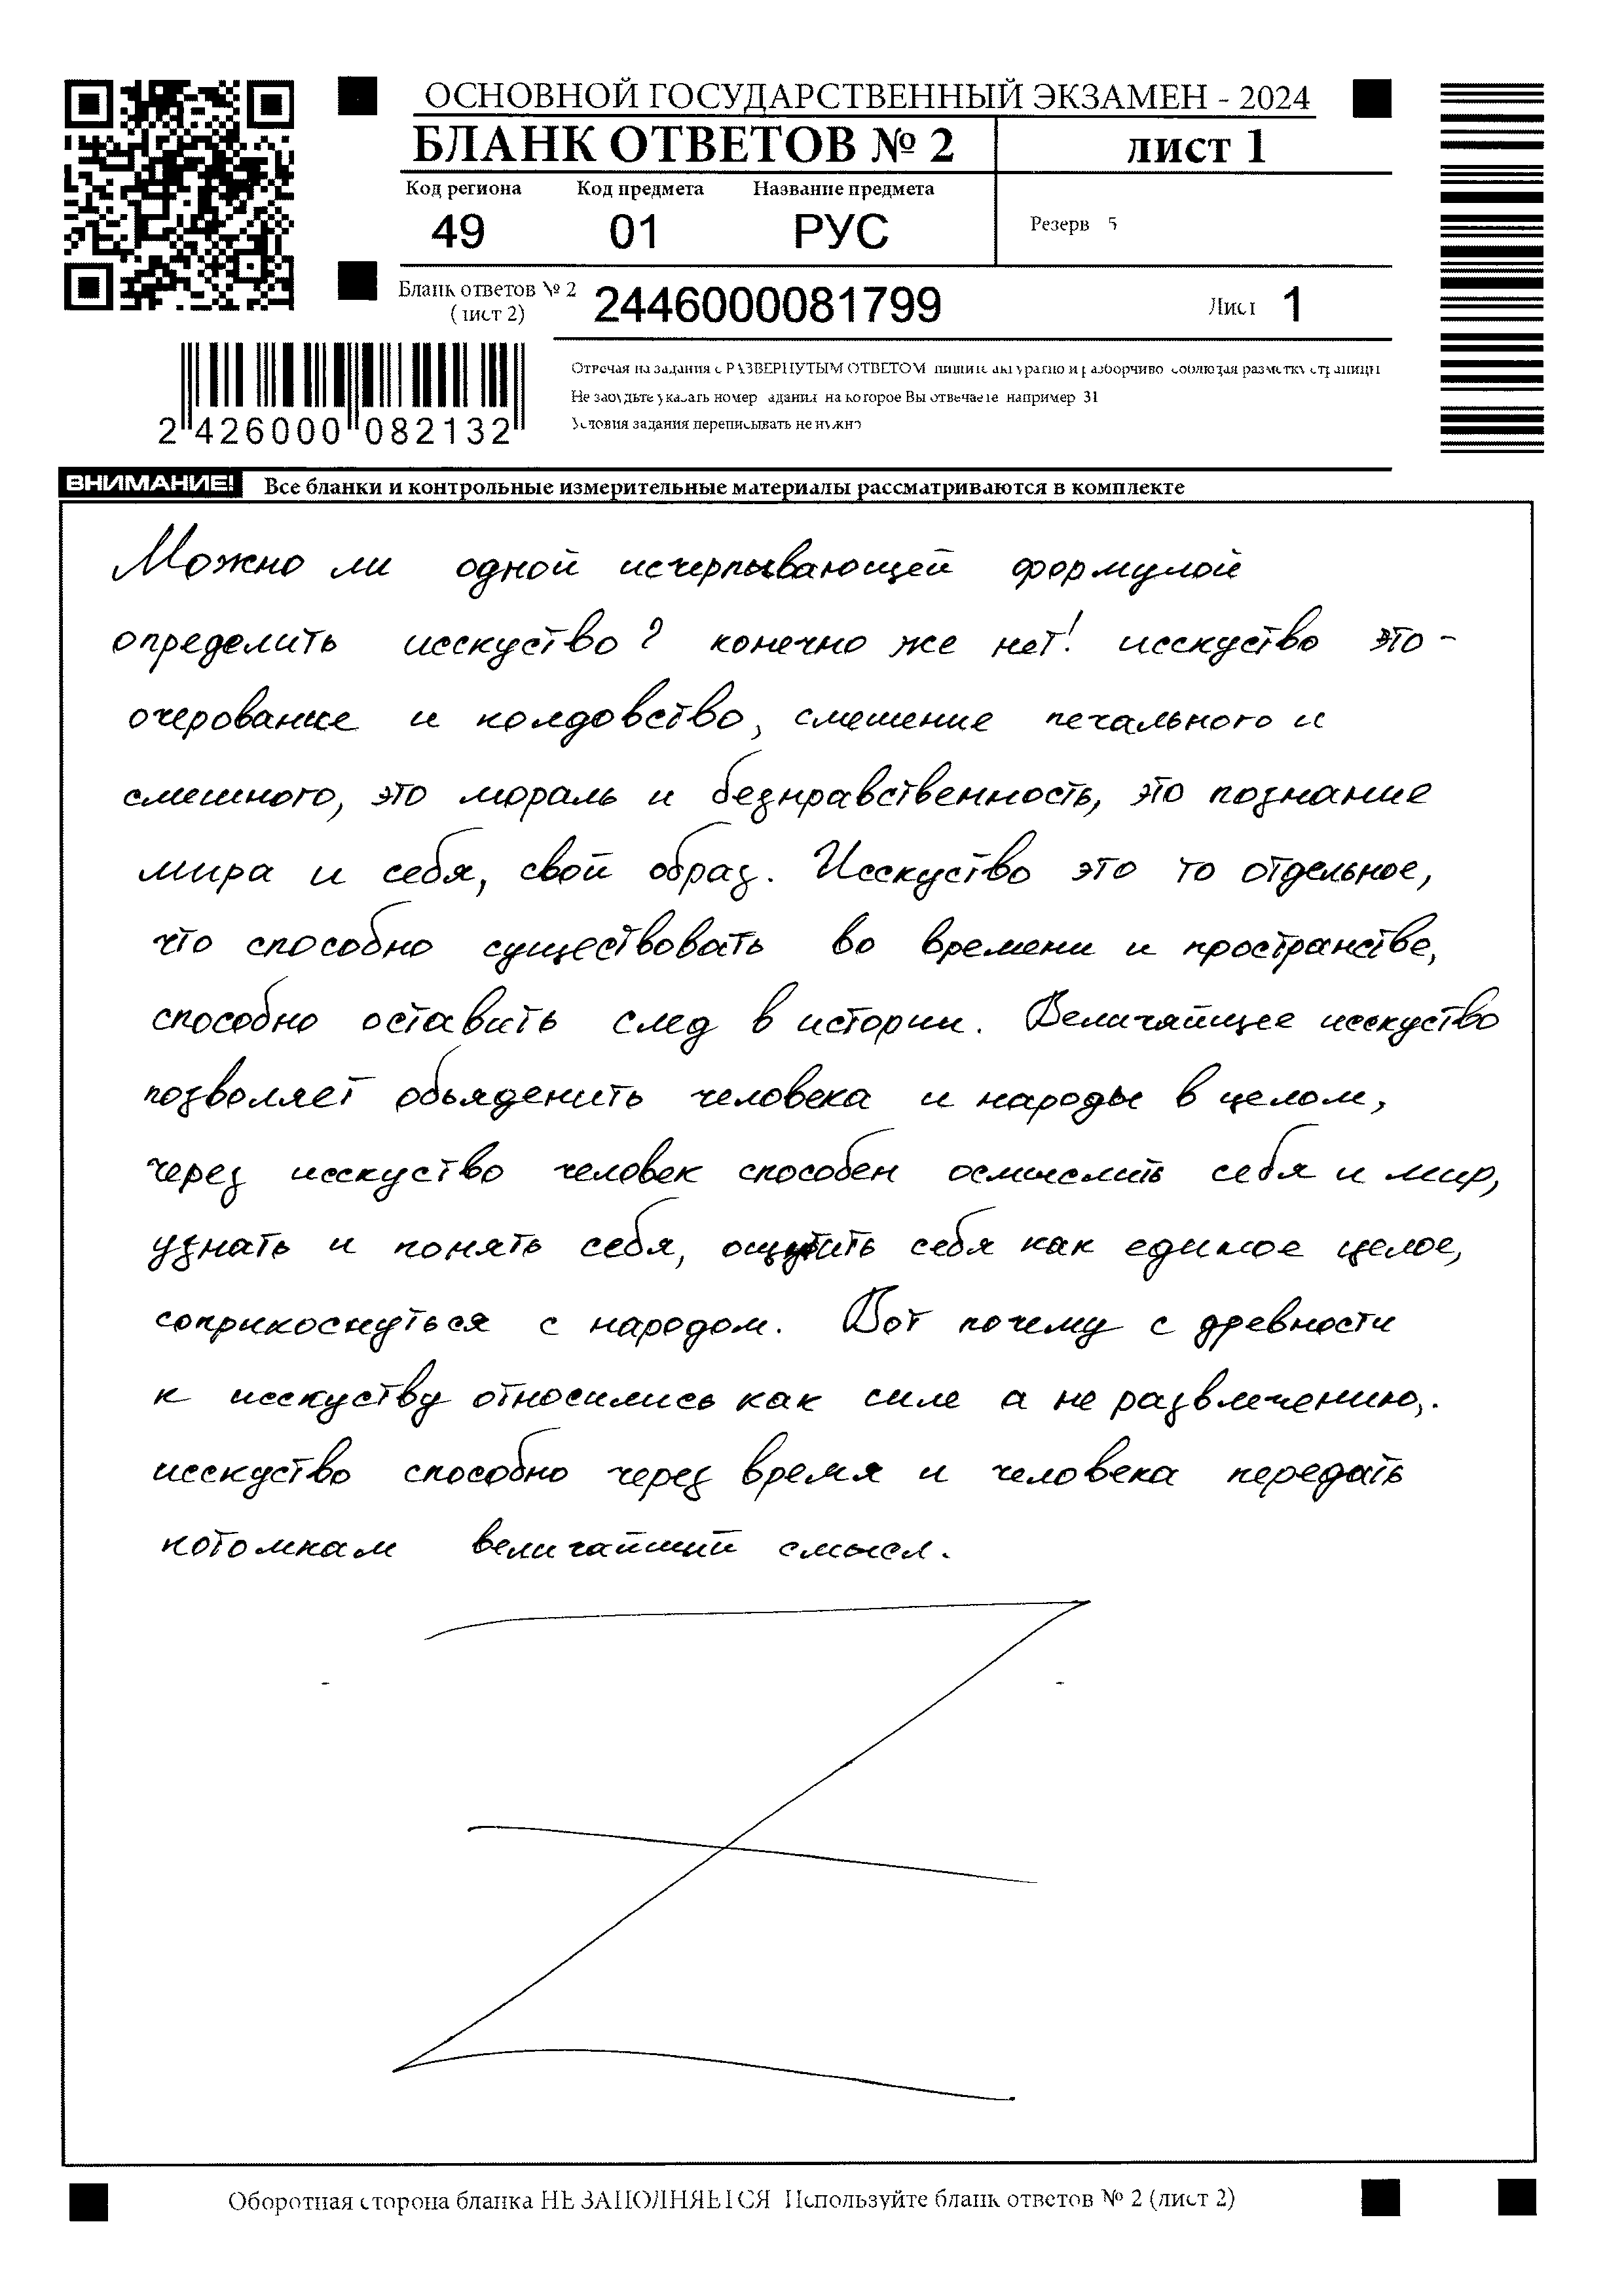 ОСНОВНОЙ ГОСУДАРСТВЕННЫЙ ЭКЗАМЕН - 2024
БЛАНК ОТВЕТОВ № 2
лист 1
Код региона Код предмета Название предмета
49 01 РУС
Резерв 5
Бланк ответов № 2
(лист 2)
2446000081799
Лист 1
2 426000 082132
Отвечая на задания с РАЗВЕРНУТЫМ ОТВЕТОМ пишите аккуратно и разборчиво соблюдая разметку страницы
Не забудьте указать номер задания на которое Вы отвечаете например 31
Условия задания переписывать не нужно
ВНИМАНИЕ! Все бланки и контрольные измерительные материалы рассматриваются в комплекте
Можно ли одной исчерпывающей формулой
определить исскуство? конечно же нет! исскуство это -
очерование и колдовство, смешение печального и
смешного, это мораль и безнравственность, это познание
мира и себя, свой образ. Исскуство это то отдельное,
что способно существовать во времени и пространстве,
способно оставить след в истории. Величайщее исскуство
позволяет обьяденить человека и народы в целом,
через исскуство человек способен осмыслить себя и мир,
узнать и понять себя, ощутить себя как единое целое,
соприкоснуться с народом. Вот почему с древности
к исскуству относились как силе а не развлечению,.
исскуство способно через время и человека передать
потомкам величайший смысл.
Оборотная сторона бланка НЕ ЗАПОЛНЯЕТСЯ Используйте бланк ответов № 2 (лист 2)